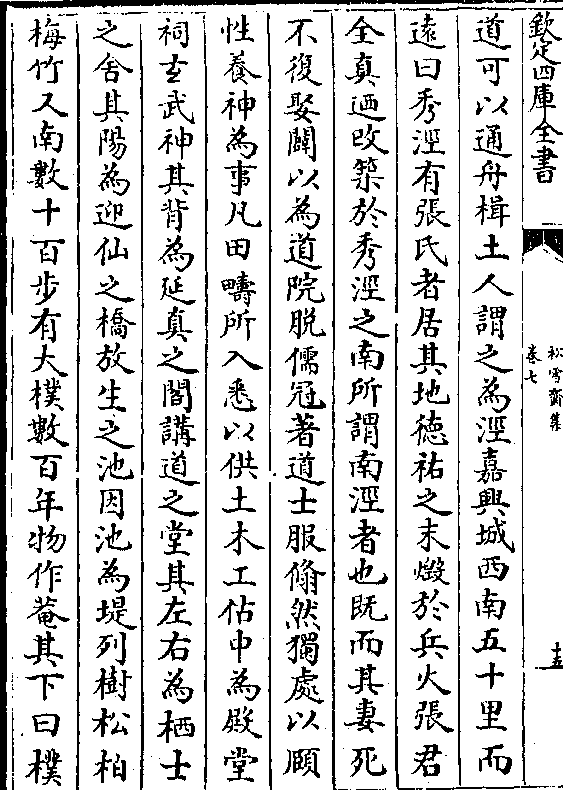 欽定四庫全書
松雪齋集
卷七
十五
道可以通舟楫土人謂之為涇嘉興城西南五十里而
遠曰秀涇有張氏者居其地德祐之末燬於兵火張君
全真迺改築於秀涇之南所謂南涇者也既而其妻死
不復娶闢以為道院脱儒冠著道士服翛然獨處以頤
性養神為事凡田疇所入悉以供土木工估中為殿堂
祠玄武神其背為延真之閣講道之堂其左右為栖士
之舍其陽為迎仙之橋放生之池因池為堤列樹松柏
梅竹又南數十百步有大樸數百年物作菴其下曰樸